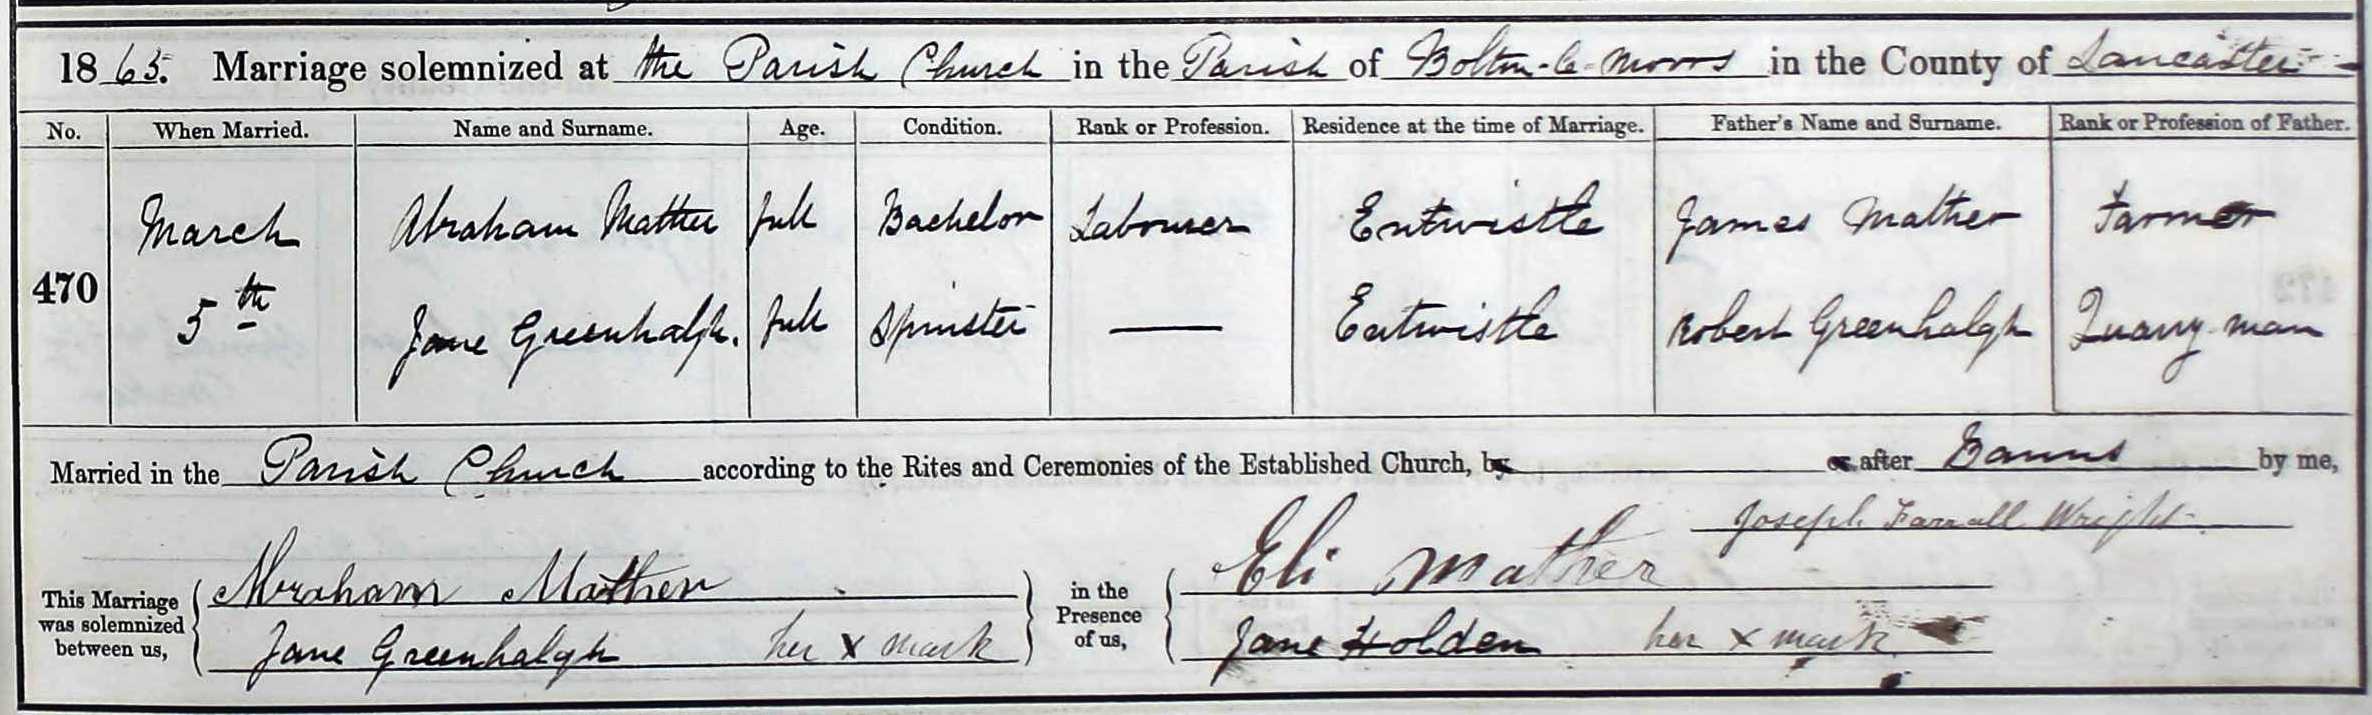 1863. Marriage solemnized at the Parish Church in the Parish of Bolton-le-Moors in the County of Lancaster
No. When Married. Name and Surname. Age. Condition. Rank or Profession. Residence at the time of Marriage. Father's Name and Surname. Rank or Profession of Father.
March Abraham Mather full Bachelor Labourer Entwistle James Mather Farmer
470 5th Jane Greenhalgh. full Spinster — Entwistle Robert Greenhalgh Quarry-man
Married in the Parish Church according to the Rites and Ceremonies of the Established Church, by or after Banns by me,
Joseph Farrall Wright
This Marriage was solemnized between us, Abraham Mather in the Presence of us, Eli Mather
Jane Greenhalgh her x mark Jane Holden her x mark